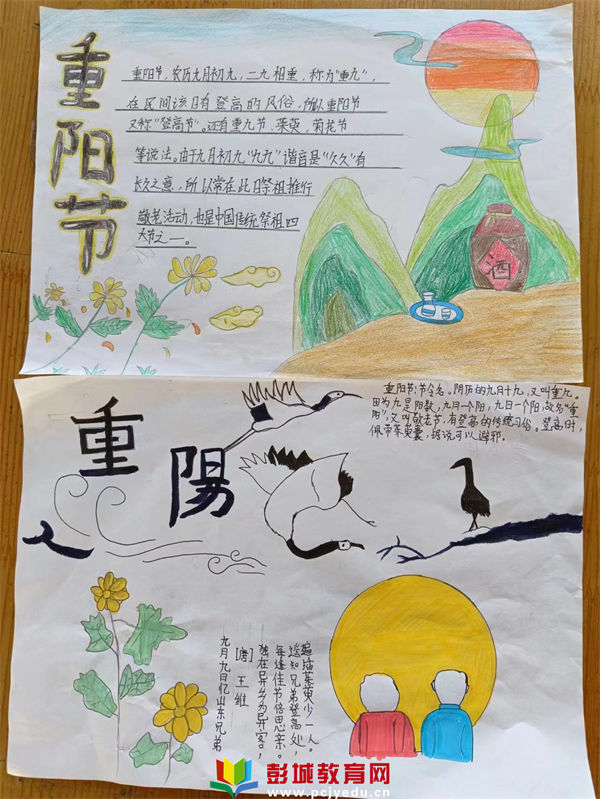 重阳节
重阳节，农历九月初九，二九相重，称为“重九”，
在民间该日有登高的风俗，所以重阳节
又称“登高节”。还有重九节、茱萸、菊花节
等说法。由于九月初九“九九”谐音是“久久”有
长久之意，所以常在此日祭祖推行
敬老活动，也是中国传统祭祖四
大节之一。
酒
重陽
重阳节:节令名。阴历的九月十九，又叫重九。
因为九是阳数，九月一个阳，九日一个阳，故名“重
阳”，又叫敬老节，有登高的传统习俗。登高时，
佩带茱萸囊，据说可以避邪。
九月九日忆山东兄弟
[唐]王维
独在异乡为异客，
每逢佳节倍思亲。
遥知兄弟登高处，
遍插茱萸少一人。
彭城教育网
www.pcjyedu.cn